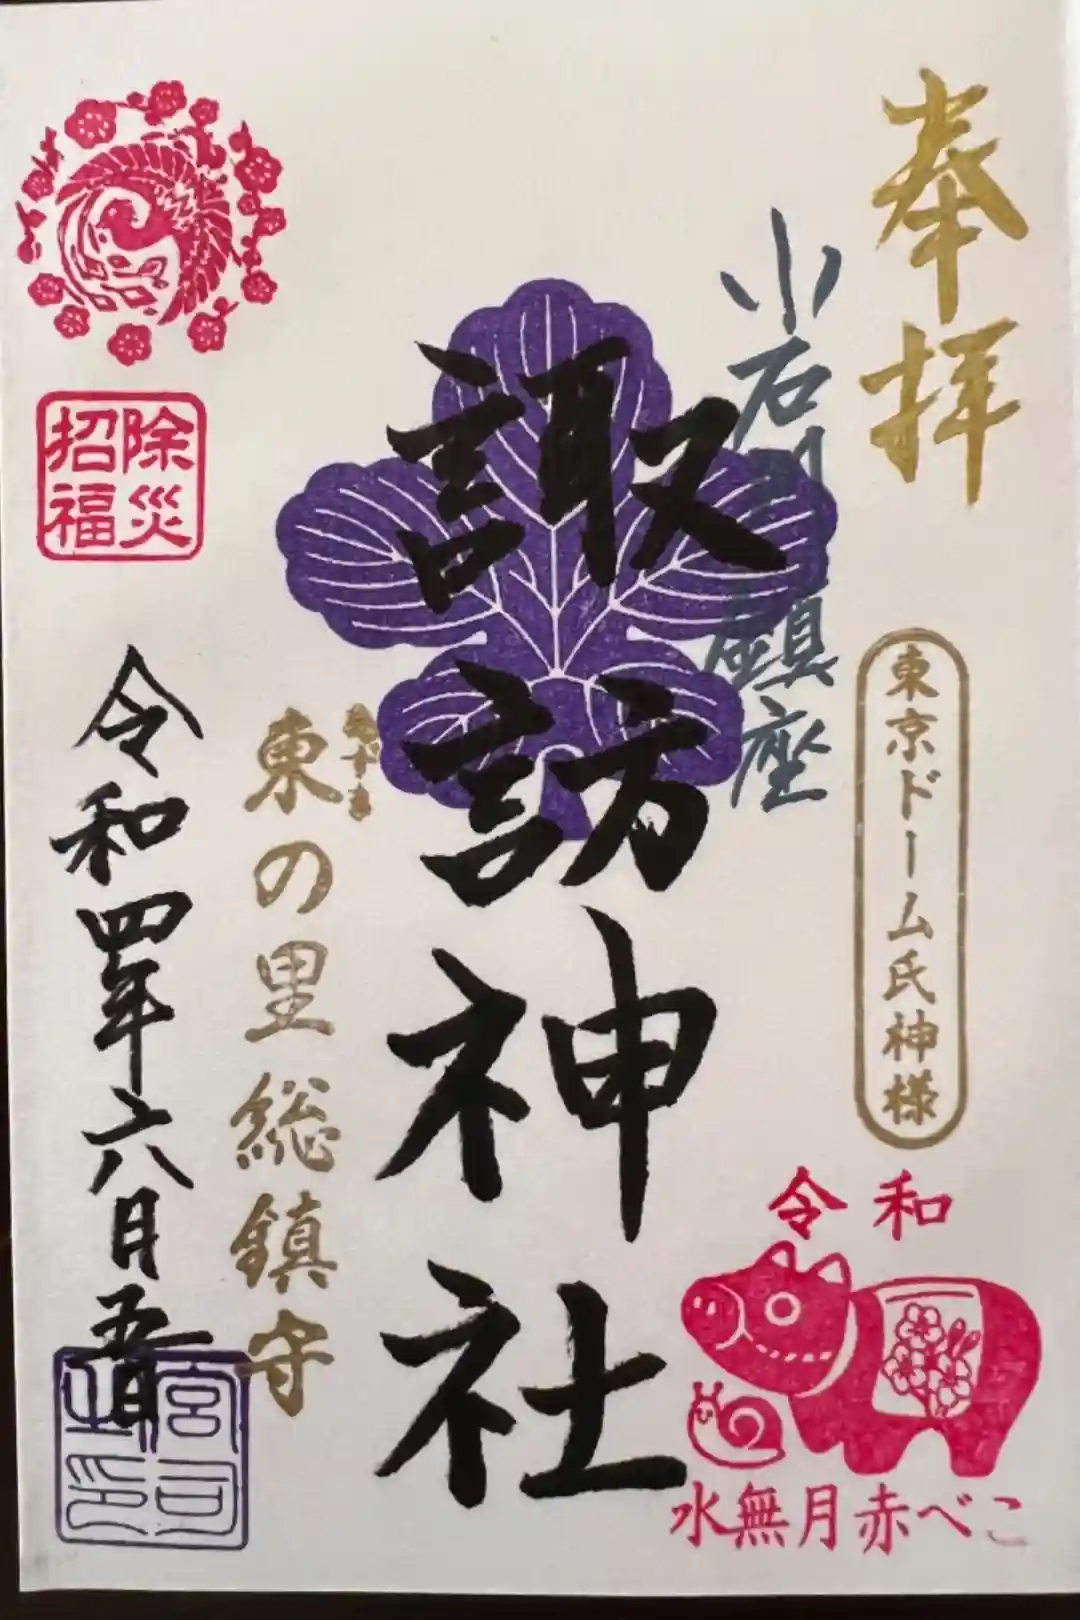 奉拝
小石川鎮座
東京ドーム氏神様
令和
水無月赤べこ
諏訪神社
東の里総鎮守
除災
招福
令和四年六月五日
宮司
之印